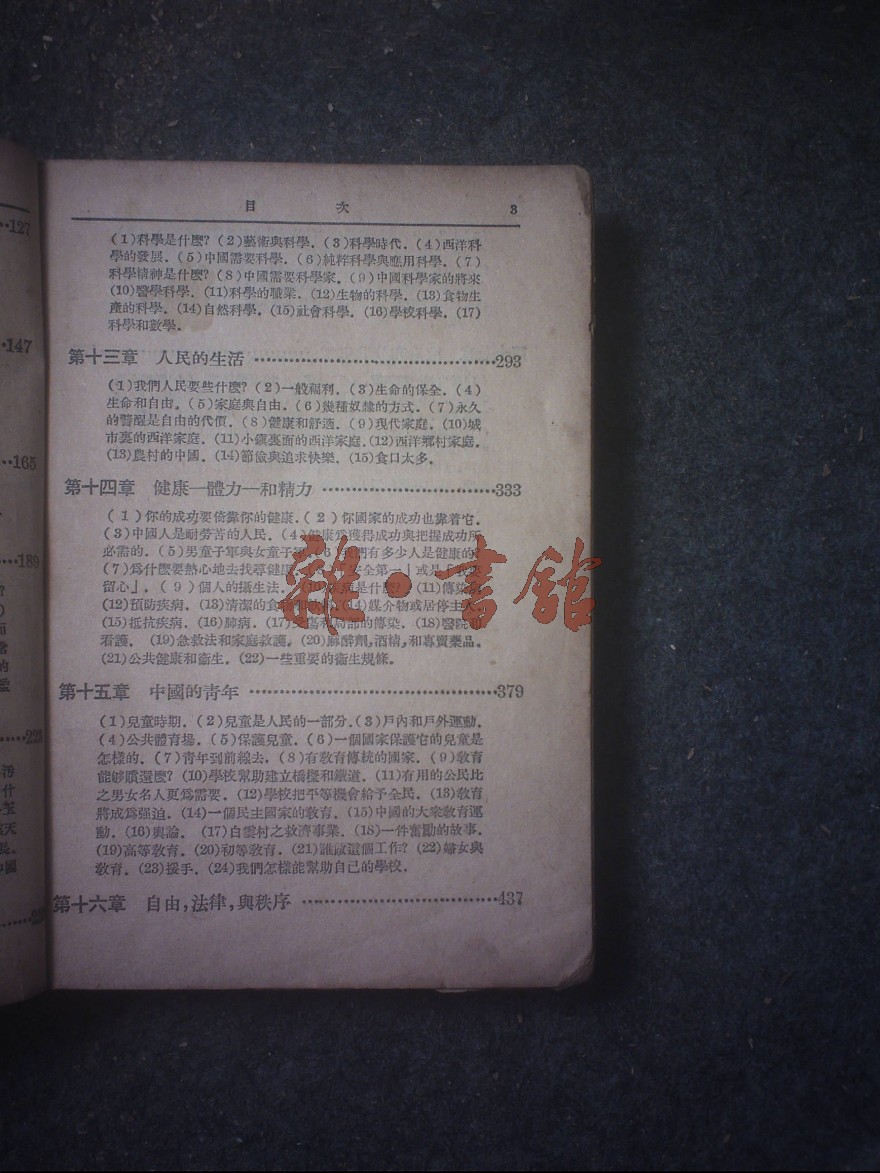 目 次 3
(1)科學是什麼? (2)藝術與科學. (3)科學時代. (4)西洋科
學的發展. (5)中國需要科學. (6)純粹科學與應用科學. (7)
科學精神是什麼? (8)中國需要科學家. (9)中國科學家的將來
(10)醫學科學. (11)科學的職業. (12)生物的科學. (13)食物生
產的科學. (14)自然科學. (15)社會科學. (16)學校科學. (17)
科學和數學.
第十三章 人民的生活 293
(1)我們人民要些什麼? (2)一般福利. (3)生命的保全. (4)
生命和自由. (5)家庭與自由. (6)幾種奴隸的方式. (7)永久
的警醒是自由的代價. (8)健康和舒適. (9)現代家庭. (10)城
市裏的西洋家庭. (11)小鎭裏面的西洋家庭. (12)西洋鄕村家庭.
(13)農村的中國. (14)節儉與追求快樂. (15)食口太多.
第十四章 健康—體力—和精力 333
(1)你的成功要倚靠你的健康. (2)你國家的成功也靠着它.
(3)中國人是耐勞苦的人民. (4)健康爲獲得成功與把握成功所
必需的. (5)男童子軍與女童子軍. (6)我們有多少人是健康的?
(7)爲什麼要熱心地去找尋健康 安全第一」或是
留心」. (9)個人的攝生法. (10)疾病是什麼? (11)傳染
(12)預防疾病. (13)清潔的食物 (14)媒介物或居停主人.
(15)抵抗疾病. (16)肺病. (17)受傷和局部的傳染. (18)醫院和
看護. (19)急救法和家庭救護. (20)麻醉劑,酒精,和專賣藥品.
(21)公共健康和衞生. (22)一些重要的衞生規條.
第十五章 中國的青年 379
(1)兒童時期. (2)兒童是人民的一部分. (3)戶內和戶外運動.
(4)公共體育場. (5)保護兒童. (6)一個國家保護它的兒童是
怎樣的. (7)青年到前線去. (8)有敎育傳統的國家. (9)敎育
能够償還麼? (10)學校幫助建立橋樑和鐵道. (11)有用的公民比
之男女名人更爲需要. (12)學校把平等機會給予全民. (13)敎育
將成爲强迫. (14)一個民主國家的敎育. (15)中國的大衆敎育運
動. (16)輿論. (17)白雲村之救濟事業. (18)一件奮勵的故事.
(19)高等敎育. (20)初等敎育. (21)誰做這個工作? (22)婦女與
敎育. (23)援手. (24)我們怎樣能幫助自己的學校.
第十六章 自由,法律,與秩序 437
127
147
165
189
223
雜·書館